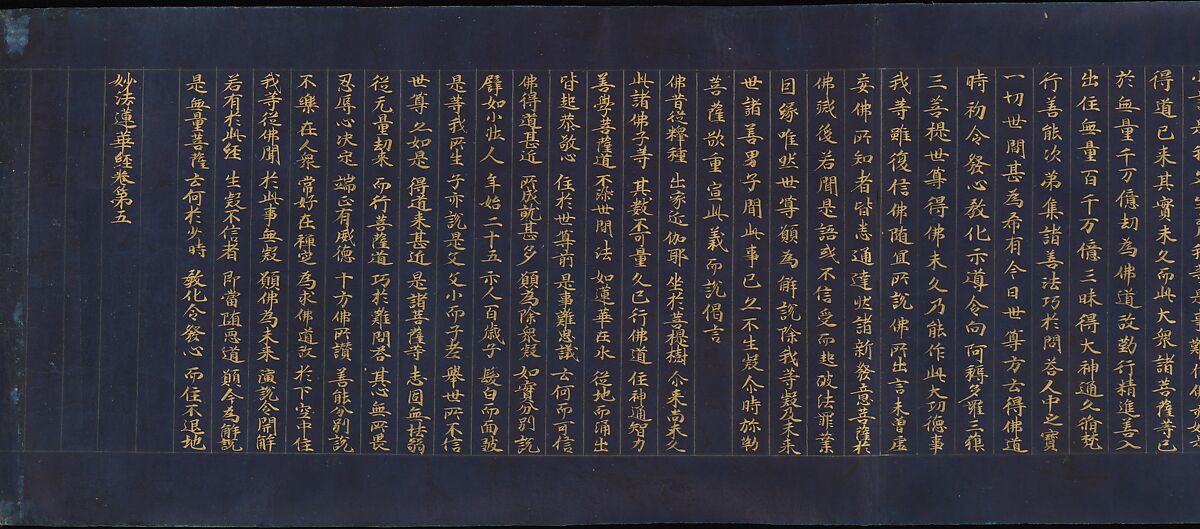 得道已来其實未久而此大衆諸菩薩等已
於無量千万億劫為佛道故勤行精進善入
出住無量百千万億三昧得大神通久脩梵
行善能次第集諸善法巧於問荅人中之寳
一切世間甚為希有今日世尊方云得佛道
時初令發心教化示導令向阿耨多羅三藐
三菩提世尊得佛未久乃能作此大功德事
我等雖復信佛随宜所說佛所出言未曾虚
妄佛所知者皆悉通達然諸新發意菩薩於
佛滅後若聞是語或不信受而起破法罪業
因縁唯然世尊願為解說除我等疑及未来
世諸善男子聞此事已亦不生疑尒時弥勒
菩薩欲重宣此義而說偈言
佛昔從釋種 出家近伽耶 坐於菩提樹 尒来尚未久
此諸佛子等 其數不可量 久已行佛道 住神通智力
善學菩薩道 不染世間法 如蓮華在水 從地而涌出
皆起恭敬心 住於世尊前 是事難思議 云何而可信
佛得道甚近 所成就甚多 願為除衆疑 如實分別說
譬如小壮人 年始二十五 示人百歳子 髮白而面皺
是等我所生 子亦說是父 父小而子老 舉世所不信
世尊亦如是 得道来甚近 是諸菩薩等 志固無怯弱
從无量劫来 而行菩薩道 巧於難問荅 其心無所畏
忍辱心決定 端正有威德 十方佛所讃 善能分別說
不樂在人衆 常好在禅定 為求佛道故 於下空中住
我等從佛聞 於此事無疑 願佛為未来 演說令開解
若有於此経 生疑不信者 即當堕悪道 願今為解說
是無量菩薩 云何於少時 教化令發心 而住不退地
妙法蓮華経巻第五